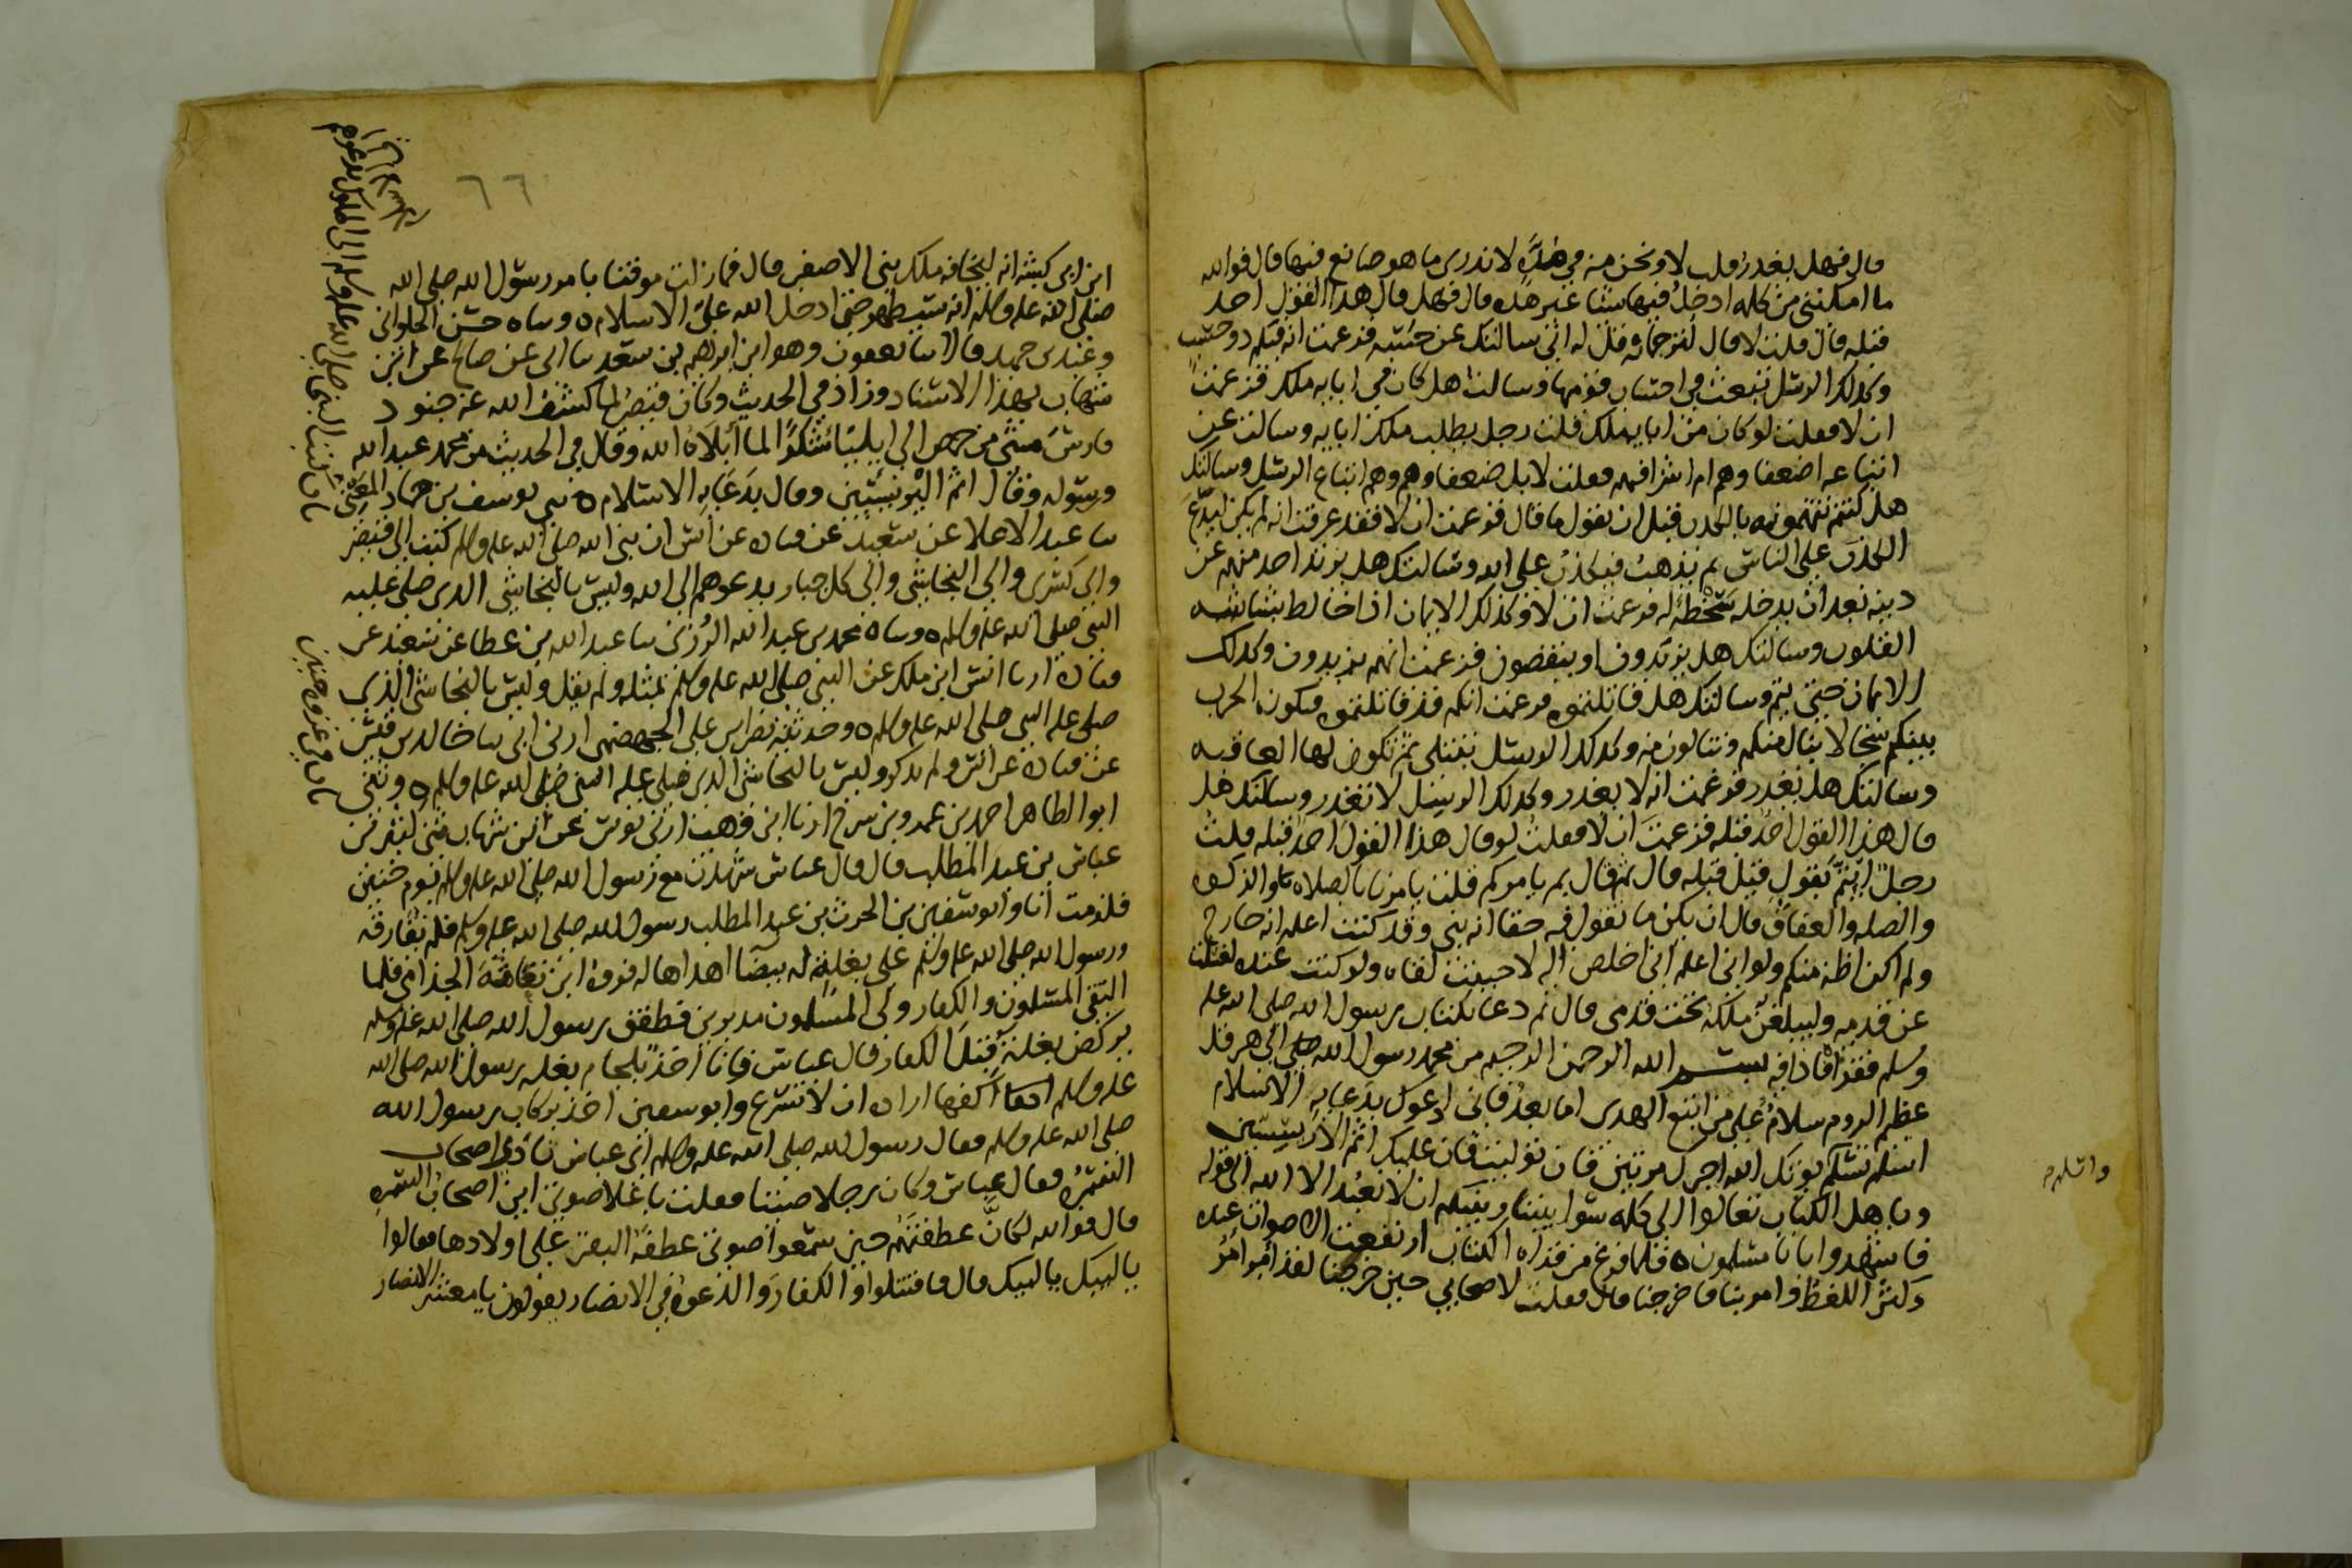 قال فهل يغدر قلت لا ونحن منه في هدة لا ندري ما هو صانع فيها قال فوالله
ما امكنني من كلمه ادخل فيها شيا غير هذه قال فهل قال هذا القول احد
قبله قال قلت لا قال لترجمانه قل له اني سالتك عن حسبه فزعمت انه فيكم ذو حسب
وكذلك الرسل تبعث في احساب قومها وسالتك هل كان في ابايه ملك فزعمت
ان لا فقلت لو كان من ابايه ملك قلت رجل يطلب ملك ابايه وسالتك عن
اتباعه اضعفاوهم ام اشرافهم فقلت لا بل ضعفاوهم وهم اتباع الرسل وسالتك
هل كنتم تتهمونه بالكذب قبل ان يقول ما قال فزعمت ان لا فقد عرفت انه لم يكن ليدع
الكذب على الناس ثم يذهب فيكذب على الله وسالتك هل يرتد احد منهم عن
دينه بعد ان يدخله سخطة له فزعمت ان لا وكذلك الايمان اذا خالط بشاشه
القلوب وسالتك هل يزيدون او ينقصون فزعمت انهم يزيدون وكذلك
الايمان حتى يتم وسالتك هل قاتلتموه فزعمت انكم قد قاتلتموه فيكون الحرب
بينكم سجالا ينال منكم وتنالون منه وكذلك الرسل تبتلى ثم تكون لها العاقبه
وسالتك هل يغدر فزعمت انه لا يغدر وكذلك الرسل لا تغدر وسالتك هل
قال هذا القول احد قبله فزعمت ان لا فقلت لو قال هذا القول احد قبله قلت
رجل ايتم بقول قيل قبله قال ثم قال بم يامركم قلت يامرنا بالصلاه والزكوه
والصله والعفاف قال ان يكن ما تقول فيه حقا انه نبي وقد كنت اعلم انه خارج
ولم اكن اظنه منكم ولو اني اعلم اني اخلص اليه لاحببت لقاه ولو كنت عنده لغسلت
عن قدميه وليبلغن ملكه تحت قدمي قال ثم دعا بكتاب رسول الله صلى الله عليه
وسلم فقراه فاذا فيه بسم الله الرحمن الرحيم من محمد رسول الله الى هرقل
عظيم الروم سلام على من اتبع الهدى اما بعد فاني ادعوك بدعايه الاسلام
اسلم تسلم يوتك الله اجرك مرتين فان توليت فان عليك اثم الاريسيين
ويا اهل الكتاب تعالوا الى كلمه سوا بيننا وبينكم ان لا نعبد الا الله الى قوله
فاشهدوا بانا مسلمون ه فلما فرغ من قراه الكتاب ارتفعت الاصوات عنده
وكثر اللغط وامر بنا فاخرجنا قال فقلت لاصحابي حين خرجنا لقد امر امر
واسلم
٦٦
ابن ابي كبشه انه ليخافه ملك بني الاصفر قال فما زلت موقنا بامر رسول الله صلى الله
صلى الله عليه وسلم انه سيظهر حتى ادخل الله علي الاسلام ه وساه حسن الحلواني
وعبد بن حميد قالا سا يعقوب وهو ابن ابراهيم بن سعد سا ابي عن صالح عن ابن
شهاب بهذا الاسناد وزاد في الحديث وكان قيصر لما كشف الله عنه جنود
فارس مشى من حمص الى ايلياء شكرا لما ابلاه الله وقال في الحديث من محمد عبد الله
ورسوله وقال اثم اليريسيين وقال بدعايه الاسلام ه سي يوسف بن حماد المعني
سا عبد الاعلا عن سعيد عن قتاده عن انس ان نبي الله صلى الله عليه وسلم كتب الى قيصر
والى كسرى والى النجاشي والى كل جبار يدعوهم الى الله وليس بالنجاشي الذي صلى عليه
النبي صلى الله عليه وسلم ه وساه محمد بن عبد الله الرزي سا عبد الوهاب بن عطا عن سعيد عن
قتاده ارنا انس ابن ملك عن النبي صلى الله عليه وسلم بمثله ولم يقل وليس بالنجاشي الذي
صلى عليه النبي صلى الله عليه وسلم ه وحدثنيه نصر بن علي الجهضمي ارني ابي سا خالد بن قيس
عن قتاده عن انس ولم يذكر وليس بالنجاشي الذي صلى عليه النبي صلى الله عليه وسلم ه وثني
ابو الطاهر احمد بن عمرو بن سرح ارنا ابن وهب ارني يونس عن ابن شهاب ثني كثير بن
عباس بن عبد المطلب قال قال عباس شهدت مع رسول الله صلى الله عليه وسلم يوم حنين
فلزمت انا وابو سفين بن الحرث بن عبد المطلب رسول الله صلى الله عليه وسلم فلم نفارقه
ورسول الله صلى الله عليه وسلم على بغلة له بيضا اهداها له فروه ابن نفاثة الجذامي فلما
التقى المسلمون والكفار ولى المسلمون مدبرين فطفق رسول الله صلى الله عليه وسلم
يركض بغلته قبل الكفار قال عباس وانا اخذ بلجام بغله رسول الله صلى الله
عليه وسلم اكفها اراده ان لا تسرع وابو سفين اخذ بركاب رسول الله
صلى الله عليه وسلم فقال رسول الله صلى الله عليه وسلم اي عباس ناد اصحاب
السمره فقال عباس وكان رجلا صيتا فقلت باعلا صوتي اين اصحاب السمره
قال فوالله لكان عطفتهم حين سمعوا صوتي عطفة البقر على اولادها فقالوا
يا لبيك يا لبيك قال فاقتتلوا والكفار والدعوه في الانصار يقولون يا معشر الانصار
باب كتب النبي صلى الله عليه وسلم الى الملوك يدعوهم
باب في غزوه حنين